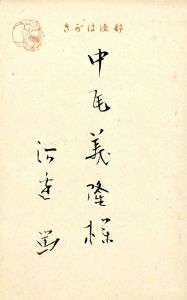 郵便はがき
中尾義隆様